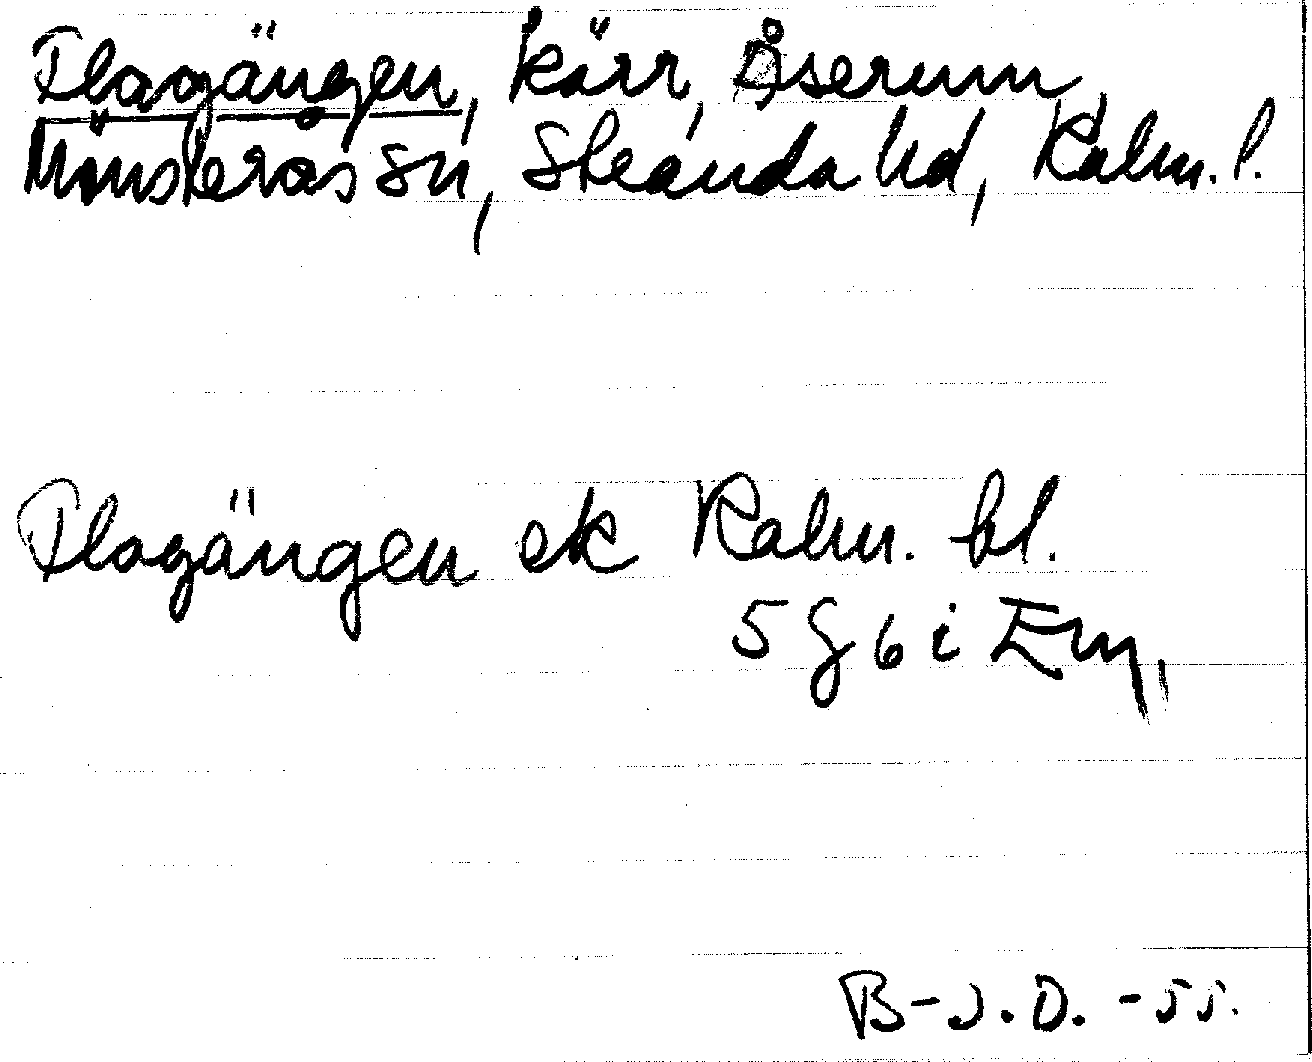 Flagängen, kärr, Åserum,
Mönsterås sn, Stranda hd, Kalm. l.
Flagängen ek Kalm. bl.
5 g 6 i Em,
B-J.D. -55.